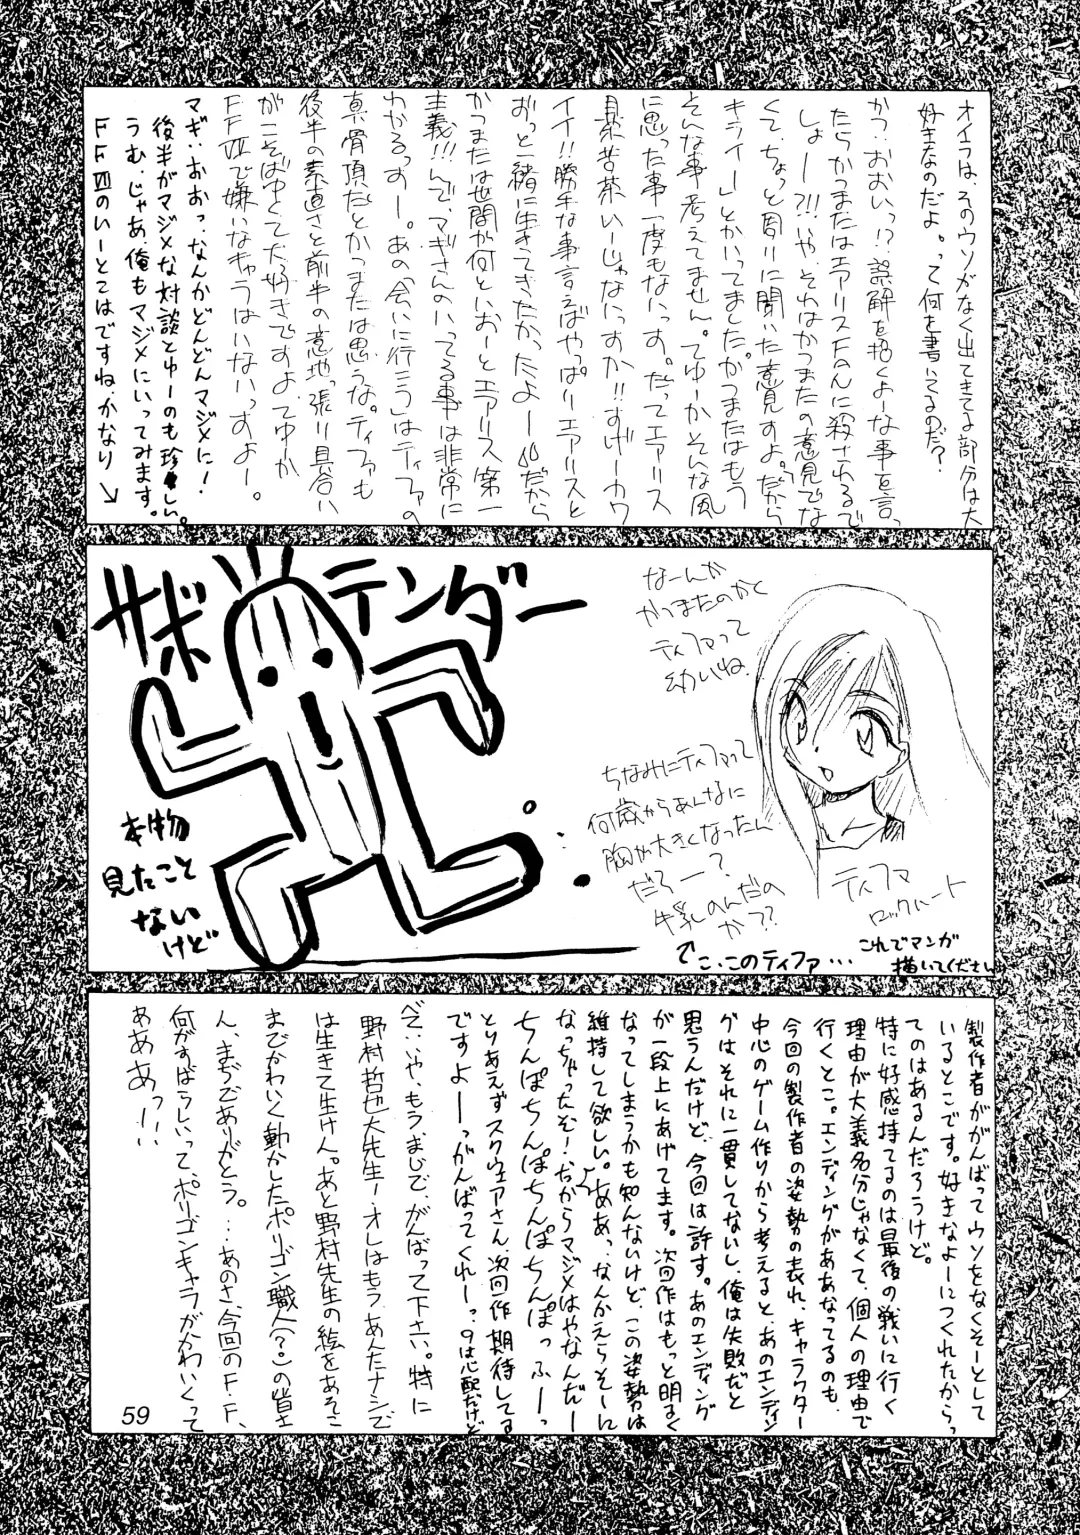 オイラは、そのウソがなく出てきてよ部分は大
好きなのだよ。って何を書いてるのだ?
かつ:おおいっ!?誤解を招くよーな事を言、
たらかつまたはエアリスFanに殺されるで
しょー?!!いや、それはかつまたの意見でな
くて、ちょっと周りに聞いた意見すよ。だから
キライー」とかいってましたがかつまたはもう
そんな事考えてません。てゆーかそんな風
に思った事一度もないっす。だってエアリス
具茶苦茶いーじゃないっすか!!すげーカワ
イイ!!勝手な事言えばやっぱりエアリスと
おっと一緒に生きてきたかったよー!!だから
かつまたは世間が何といおーとエアリス第一
主義!!!んで、マギさんのいってる事は非常に
わかるっすー。あの「会いに行こう」はティファの
真骨頂だとかつまたは思うな。ティファも
後半の素直さと前半の意地っ張り具合い
がこそばゆくて大好きですよ。てゆーか
FFⅦで嫌いなキャラはいないっすよー。
マギ:おおっ、なんかどんどんマジメに!
後半がマジメな対談とゆーのも珍しい。
うむ、じゃあ、俺もマジメにいってみます。
FFⅦのいーとこはですね、かなり↘
サボテンダー
本物
見たこと
ないけど
なーんか
かつまたのかくと
ティファって
幼いね
ちなみにティファって
何歳からあんなに
胸が大きくなったん
だろー?
牛乳のんだの
かな??
↖こ、このティファ…
ティファ
ロックハート
これでマンガ
描いてください
製作者ががんばってウソをなくそーとして
いるとこです。好きなよーにつくれたからっ
てのはあるんだろうけど。
特に好感持てるのは最後の戦いに行く
理由が大義名分じゃなくて、個人の理由で
行くとこ。エンディングがああなってるのも、
今回の製作者の姿勢の表れ、キャラクター
中心のゲーム作りから考えると、あのエンディン
グはそれに一貫してないし、俺は失敗だと
思うんだけど、今回は許す。あのエンディング
が一段上にあげてます。次回作はもっと明るく
なってしまうかも知んないけど、この姿勢は
維持して欲しい。ああっ、なんかえらそーに
なっちゃったぞ!だからマジメはやなんだー
ちんぽちんぽちんぽちんぽっふーっ
とりあえずスクウェアさん、次回作期待してる
ですよーーっがんばってくれーっ、9は心配だけど
べ…いや、もうまじで、がんばって下さい。特に
野村哲也大先生ーオレはもう、あんたナシで
は生きて生けん。あと野村先生の絵をあそこ
までかわいく動かしたポリゴン職人(?)の皆さ
ん、まぢでありがとう。…あのさ、今回のF・F、
何がすばらしいって、ポリゴンキャラがかわいくって
ああああっ!!
59